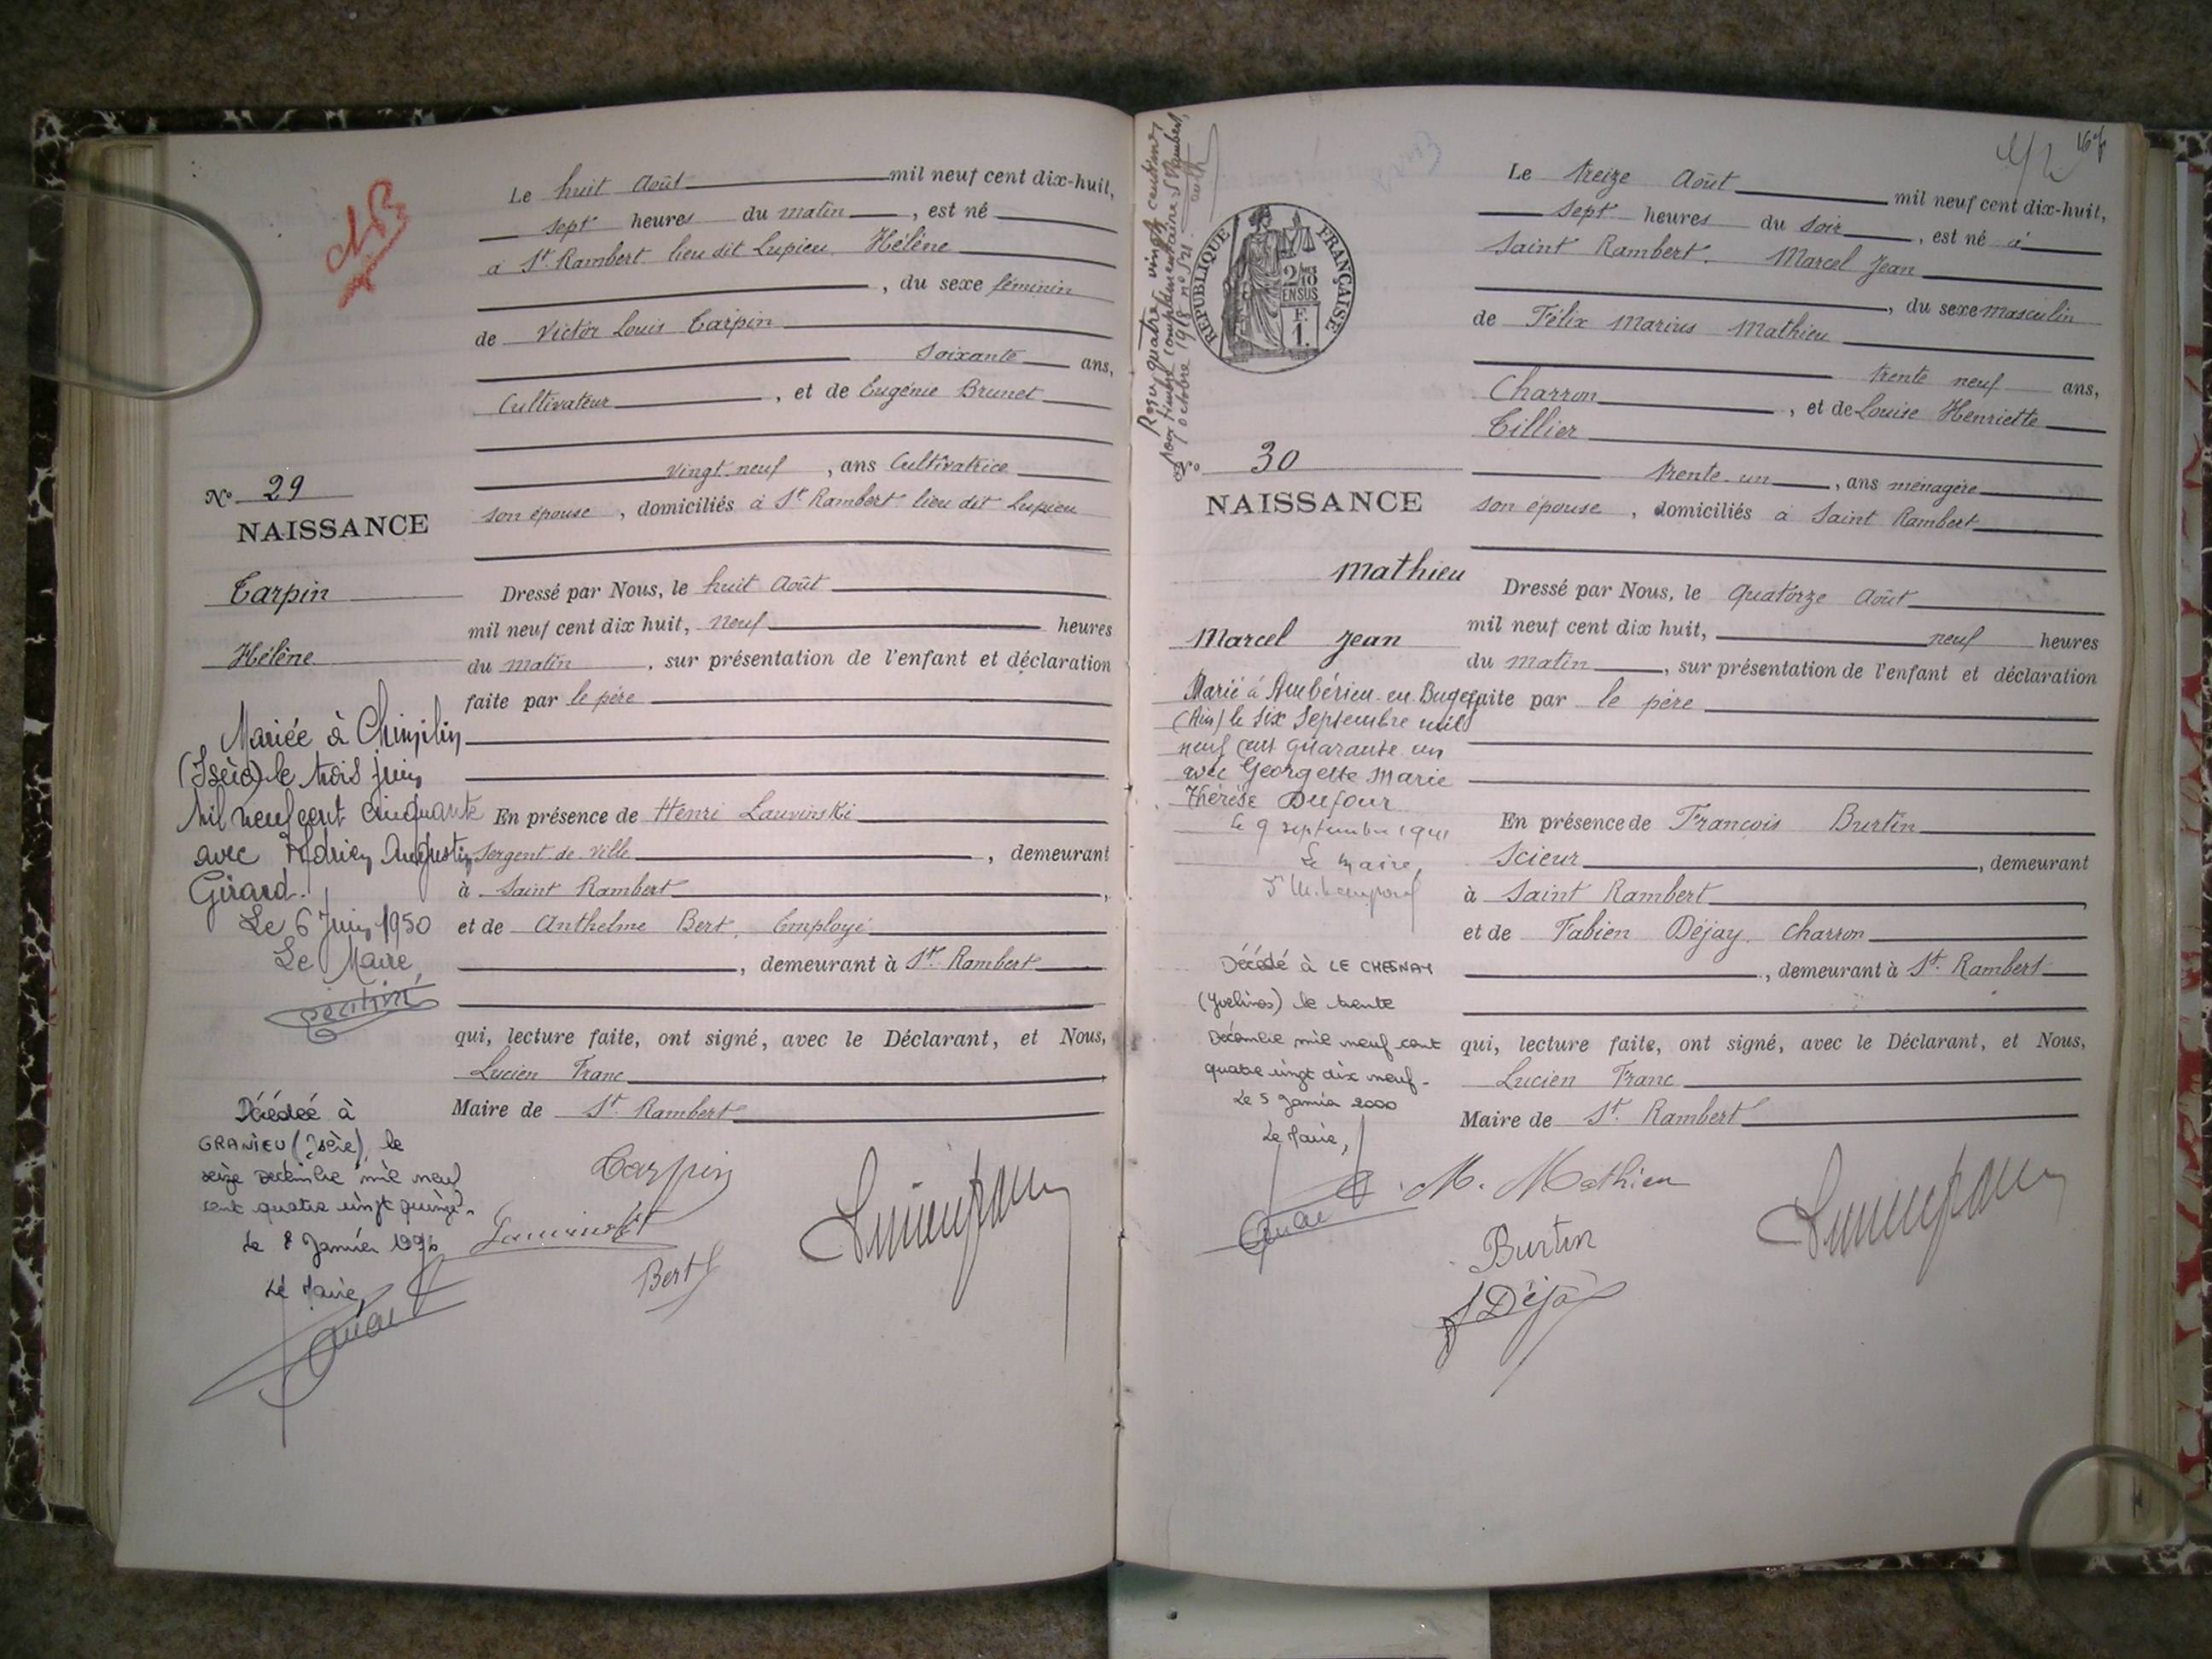 Le huit Août mil neuf cent dix-huit,
sept heures du matin, est né
à St. Rambert lieu dit Lupieu Hélène
, du sexe féminin
de Victor Louis Carpin
soixante ans,
Cultivateur, et de Eugénie Brunet
vingt neuf, ans Cultivatrice
son épouse, domiciliés à St. Rambert lieu dit Lupieu
No 29
NAISSANCE
Carpin
Hélène
Dressé par Nous, le huit Août
mil neuf cent dix huit, neuf heures
du matin, sur présentation de l'enfant et déclaration
faite par le père
Mariée à Chimilin
(Isère) le trois juin
mil neuf cent cinquante
avec Adrien Augustin
Girard.
Le 6 Juin 1950
Le Maire,
En présence de Henri Lauvinski
Sergent de Ville, demeurant
à Saint Rambert,
et de Anthelme Bert, Employé
, demeurant à St. Rambert
qui, lecture faite, ont signé, avec le Déclarant, et Nous,
Lucien Franc
Maire de St. Rambert
Décédée à
GRANIEU (Isère), le
seize décembre mil neuf
cent quatre vingt quinze.
Le 8 Janvier 1996
Le Maire,
Carpin
Bert
Reçu quatre vingt centimes
pour timbre complémentaire. St Rambert,
octobre 1918 no 521.
RÉPUBLIQUE FRANÇAISE
2/10
EN SUS
F.
1.
Le treize Août mil neuf cent dix-huit,
sept heures du soir, est né à
Saint Rambert. Marcel Jean
, du sexe masculin
de Félix Marius Mathieu
trente neuf ans,
Charron, et de Louise Henriette
Tillier
trente-un, ans ménagère
son épouse, domiciliés à Saint Rambert
No 30
NAISSANCE
Mathieu
Marcel Jean
Dressé par Nous, le quatorze Août
mil neuf cent dix huit, neuf heures
du matin, sur présentation de l'enfant et déclaration
faite par le père
Marié à Ambérieu-en-Bugey
(Ain) le six Septembre mil
neuf cent quarante un
avec Georgette Marie
Thérèse Dufour
Le 9 septembre 1941
Le Maire,
En présence de François Burtin
Scieur, demeurant
à Saint Rambert
et de Fabien Déjay Charron
, demeurant à St. Rambert
qui, lecture faite, ont signé, avec le Déclarant, et Nous,
Lucien Franc
Maire de St. Rambert
Décédé à LE CHESNAY
(Yvelines) le trente
Décembre mil neuf cent
quatre vingt dix neuf.
Le 5 Janvier 2000
Le Maire,
M. Mathieu
Burtin